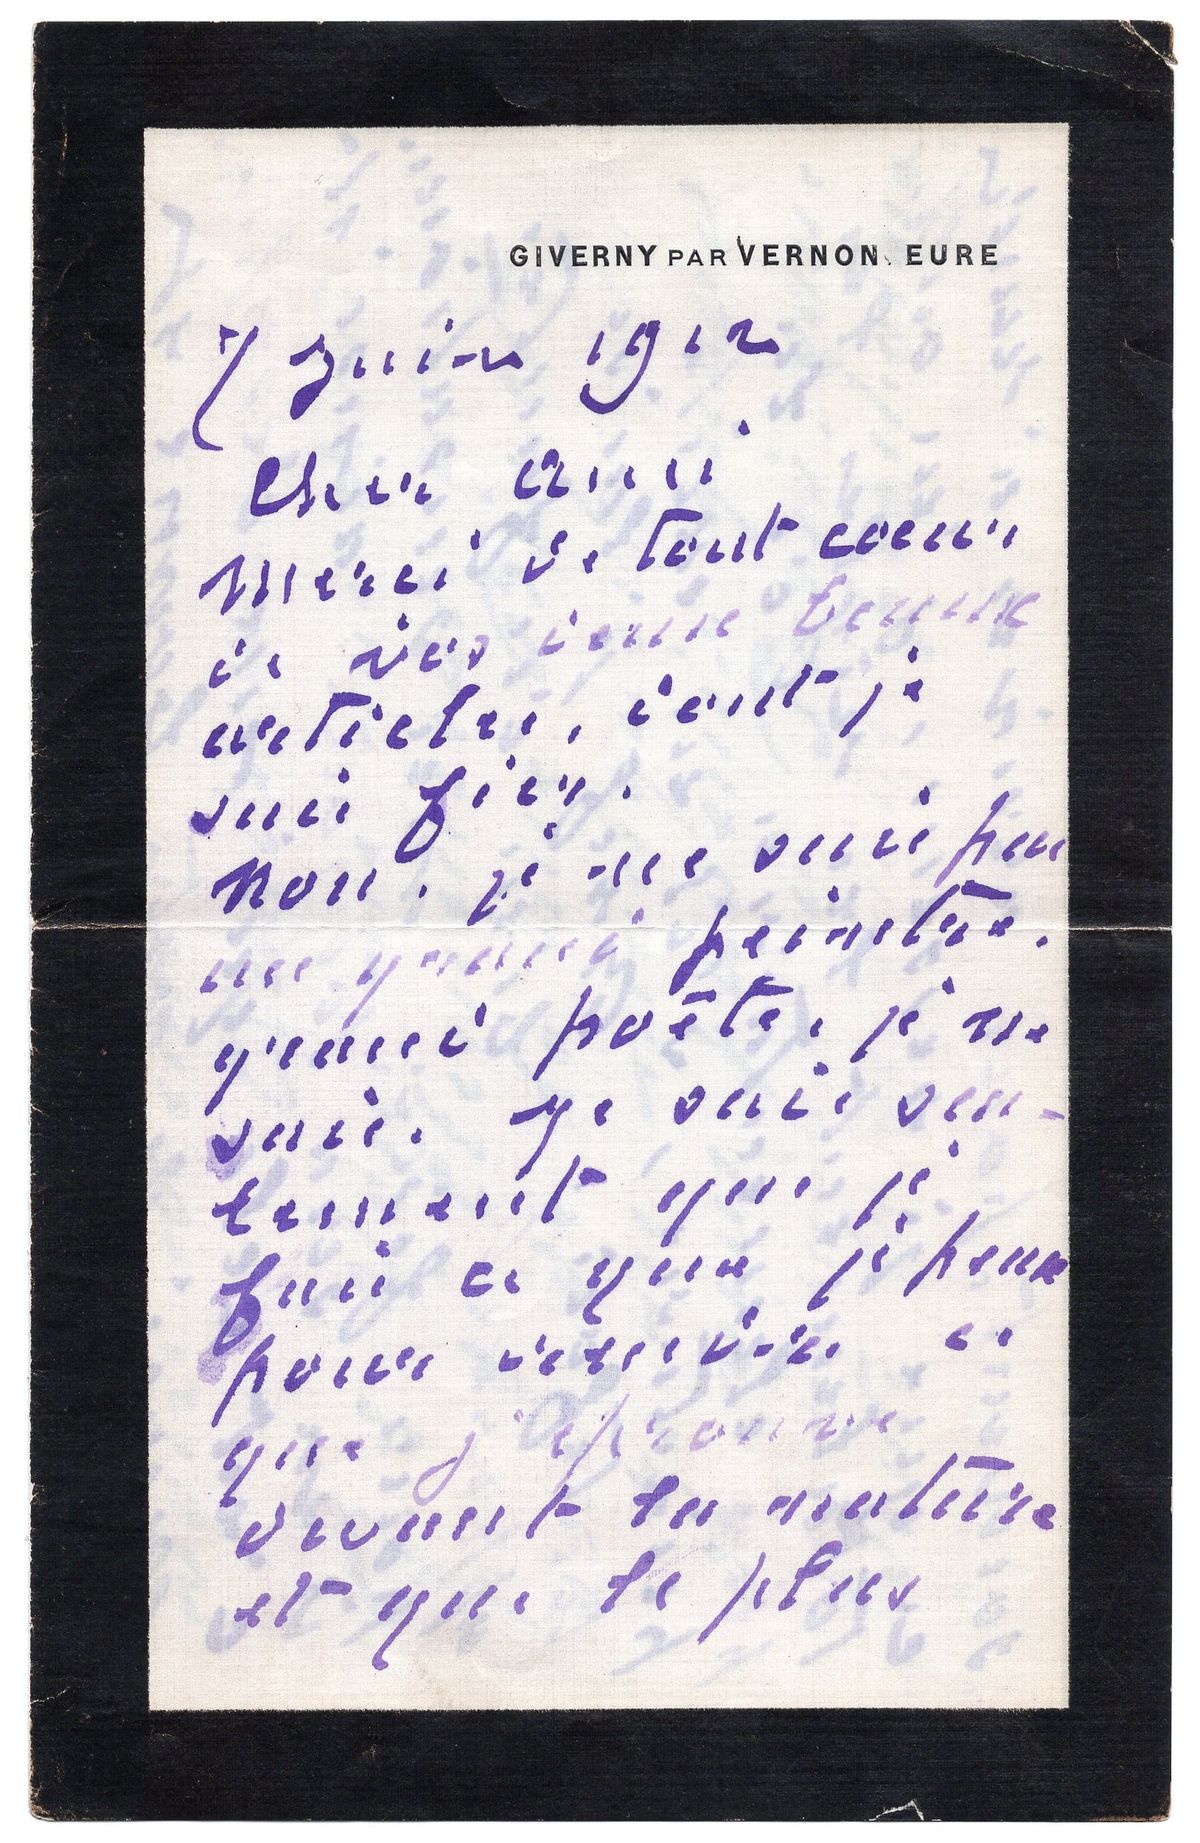 GIVERNY PAR VERNON. EURE
7 Juin 1912
Cher ami
Merci de tout coeur
de vos deux beaux
articles, dont je
suis fier.
Non, je ne suis pas
un grand peintre.
grand poète, je ne
sais. Je sais seu-
lement que je
fais ce que je peux
pour rendre ce
que j'éprouve
devant la nature
et que le plus